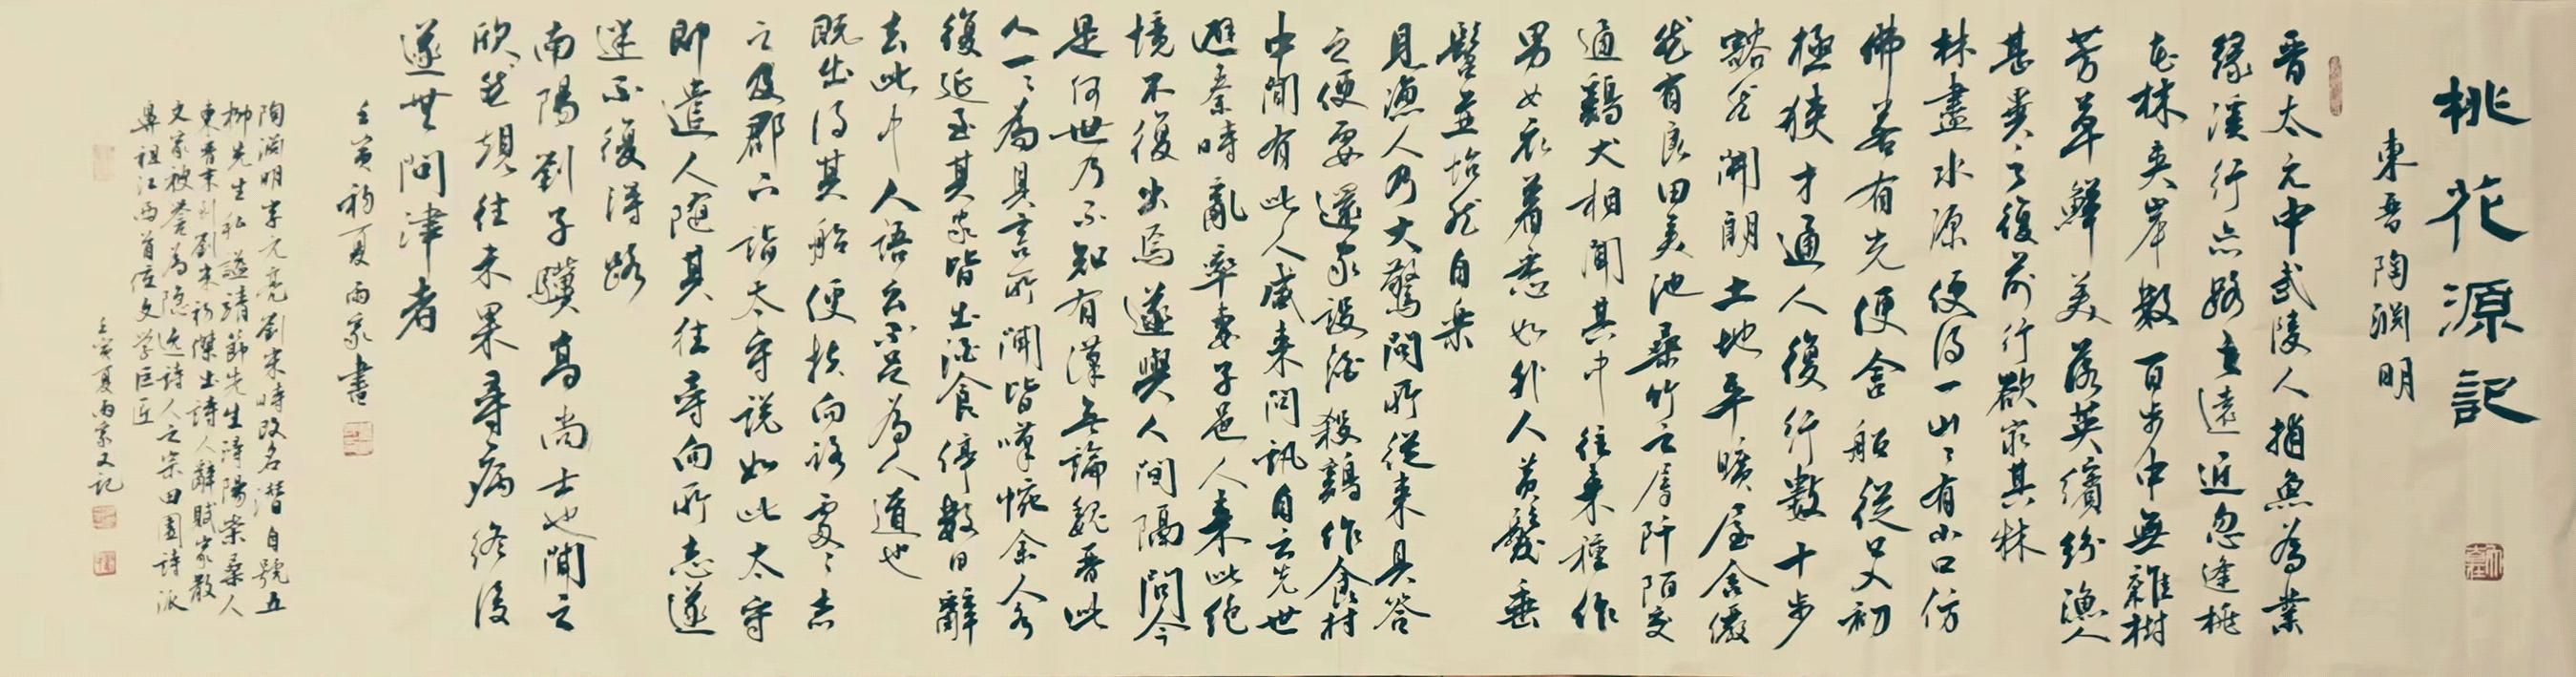 桃花源記
東晋陶渊明
晋太元中武陵人捕魚為業
緣溪行忘路之遠近忽逢桃
花林夾岸數百步中無雜樹
芳草鮮美落英繽紛漁人
甚異之復前行欲窮其林
林盡水源便得一山〻有小口仿
佛若有光便舍船從口入初
極狹才通人復行數十步
豁然開朗土地平曠屋舍儼
然有良田美池桑竹之屬阡陌交
通鷄犬相聞其中往来種作
男女衣着悉如外人黄髮垂
髫並怡然自樂
見漁人乃大驚問所從来具答
之便要還家設酒殺鷄作食村
中聞有此人咸来問訊自云先世
避秦時亂率妻子邑人来此绝
境不復出焉遂與人間隔問今
是何世乃不知有漢無論魏晋此
人一〻為具言所聞皆嘆惋余人各
復延至其家皆出酒食停數日辭
去此中人語云不足為人道也
既出得其船便扶向路處〻志
之及郡下詣太守説如此太守
即遣人隨其往尋向所志遂
迷不復得路
南陽劉子驥高尚士也聞之
欣然規往未果尋病终後
遂無問津者
壬寅初夏雨家書
陶渊明字元亮劉宋時改名潜自號五
柳先生私謚靖節先生潯陽柴桑人
東晋末到劉宋初傑出詩人辭賦家散
文家被譽為隐逸詩人之宗田園詩派
鼻祖江西首位文学巨匠
壬寅夏雨家又記